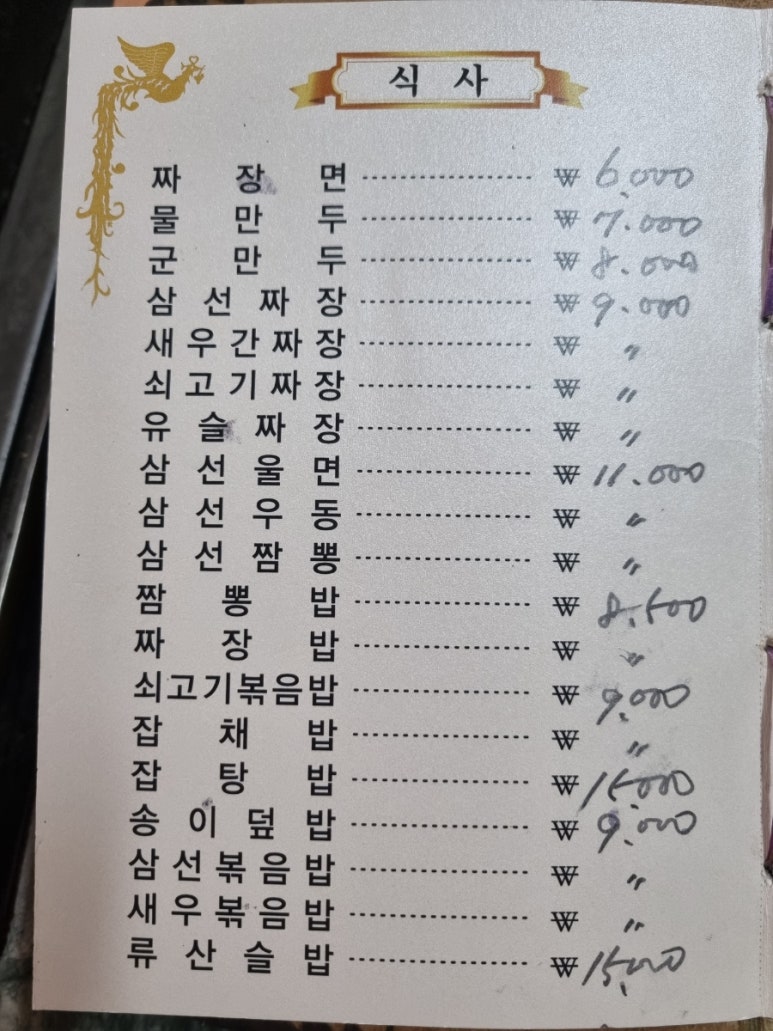 식 사
짜 장 면 ₩ 6.000
물 만 두 ₩ 7.000
군 만 두 ₩ 8.000
삼 선 짜 장 ₩ 9.000
새 우 간 짜 장 ₩ 〃
쇠 고 기 짜 장 ₩ 〃
유 슬 짜 장 ₩ 〃
삼 선 울 면 ₩ 11.000
삼 선 우 동 ₩ 〃
삼 선 짬 뽕 ₩ 〃
짬 뽕 밥 ₩ 8.500
짜 장 밥 ₩ 〃
쇠고기볶음밥 ₩ 9.000
잡 채 밥 ₩ 〃
잡 탕 밥 ₩ 15.000
송 이 덮 밥 ₩ 9.000
삼 선 볶 음 밥 ₩ 〃
새 우 볶 음 밥 ₩ 〃
류 산 슬 밥 ₩ 15.000